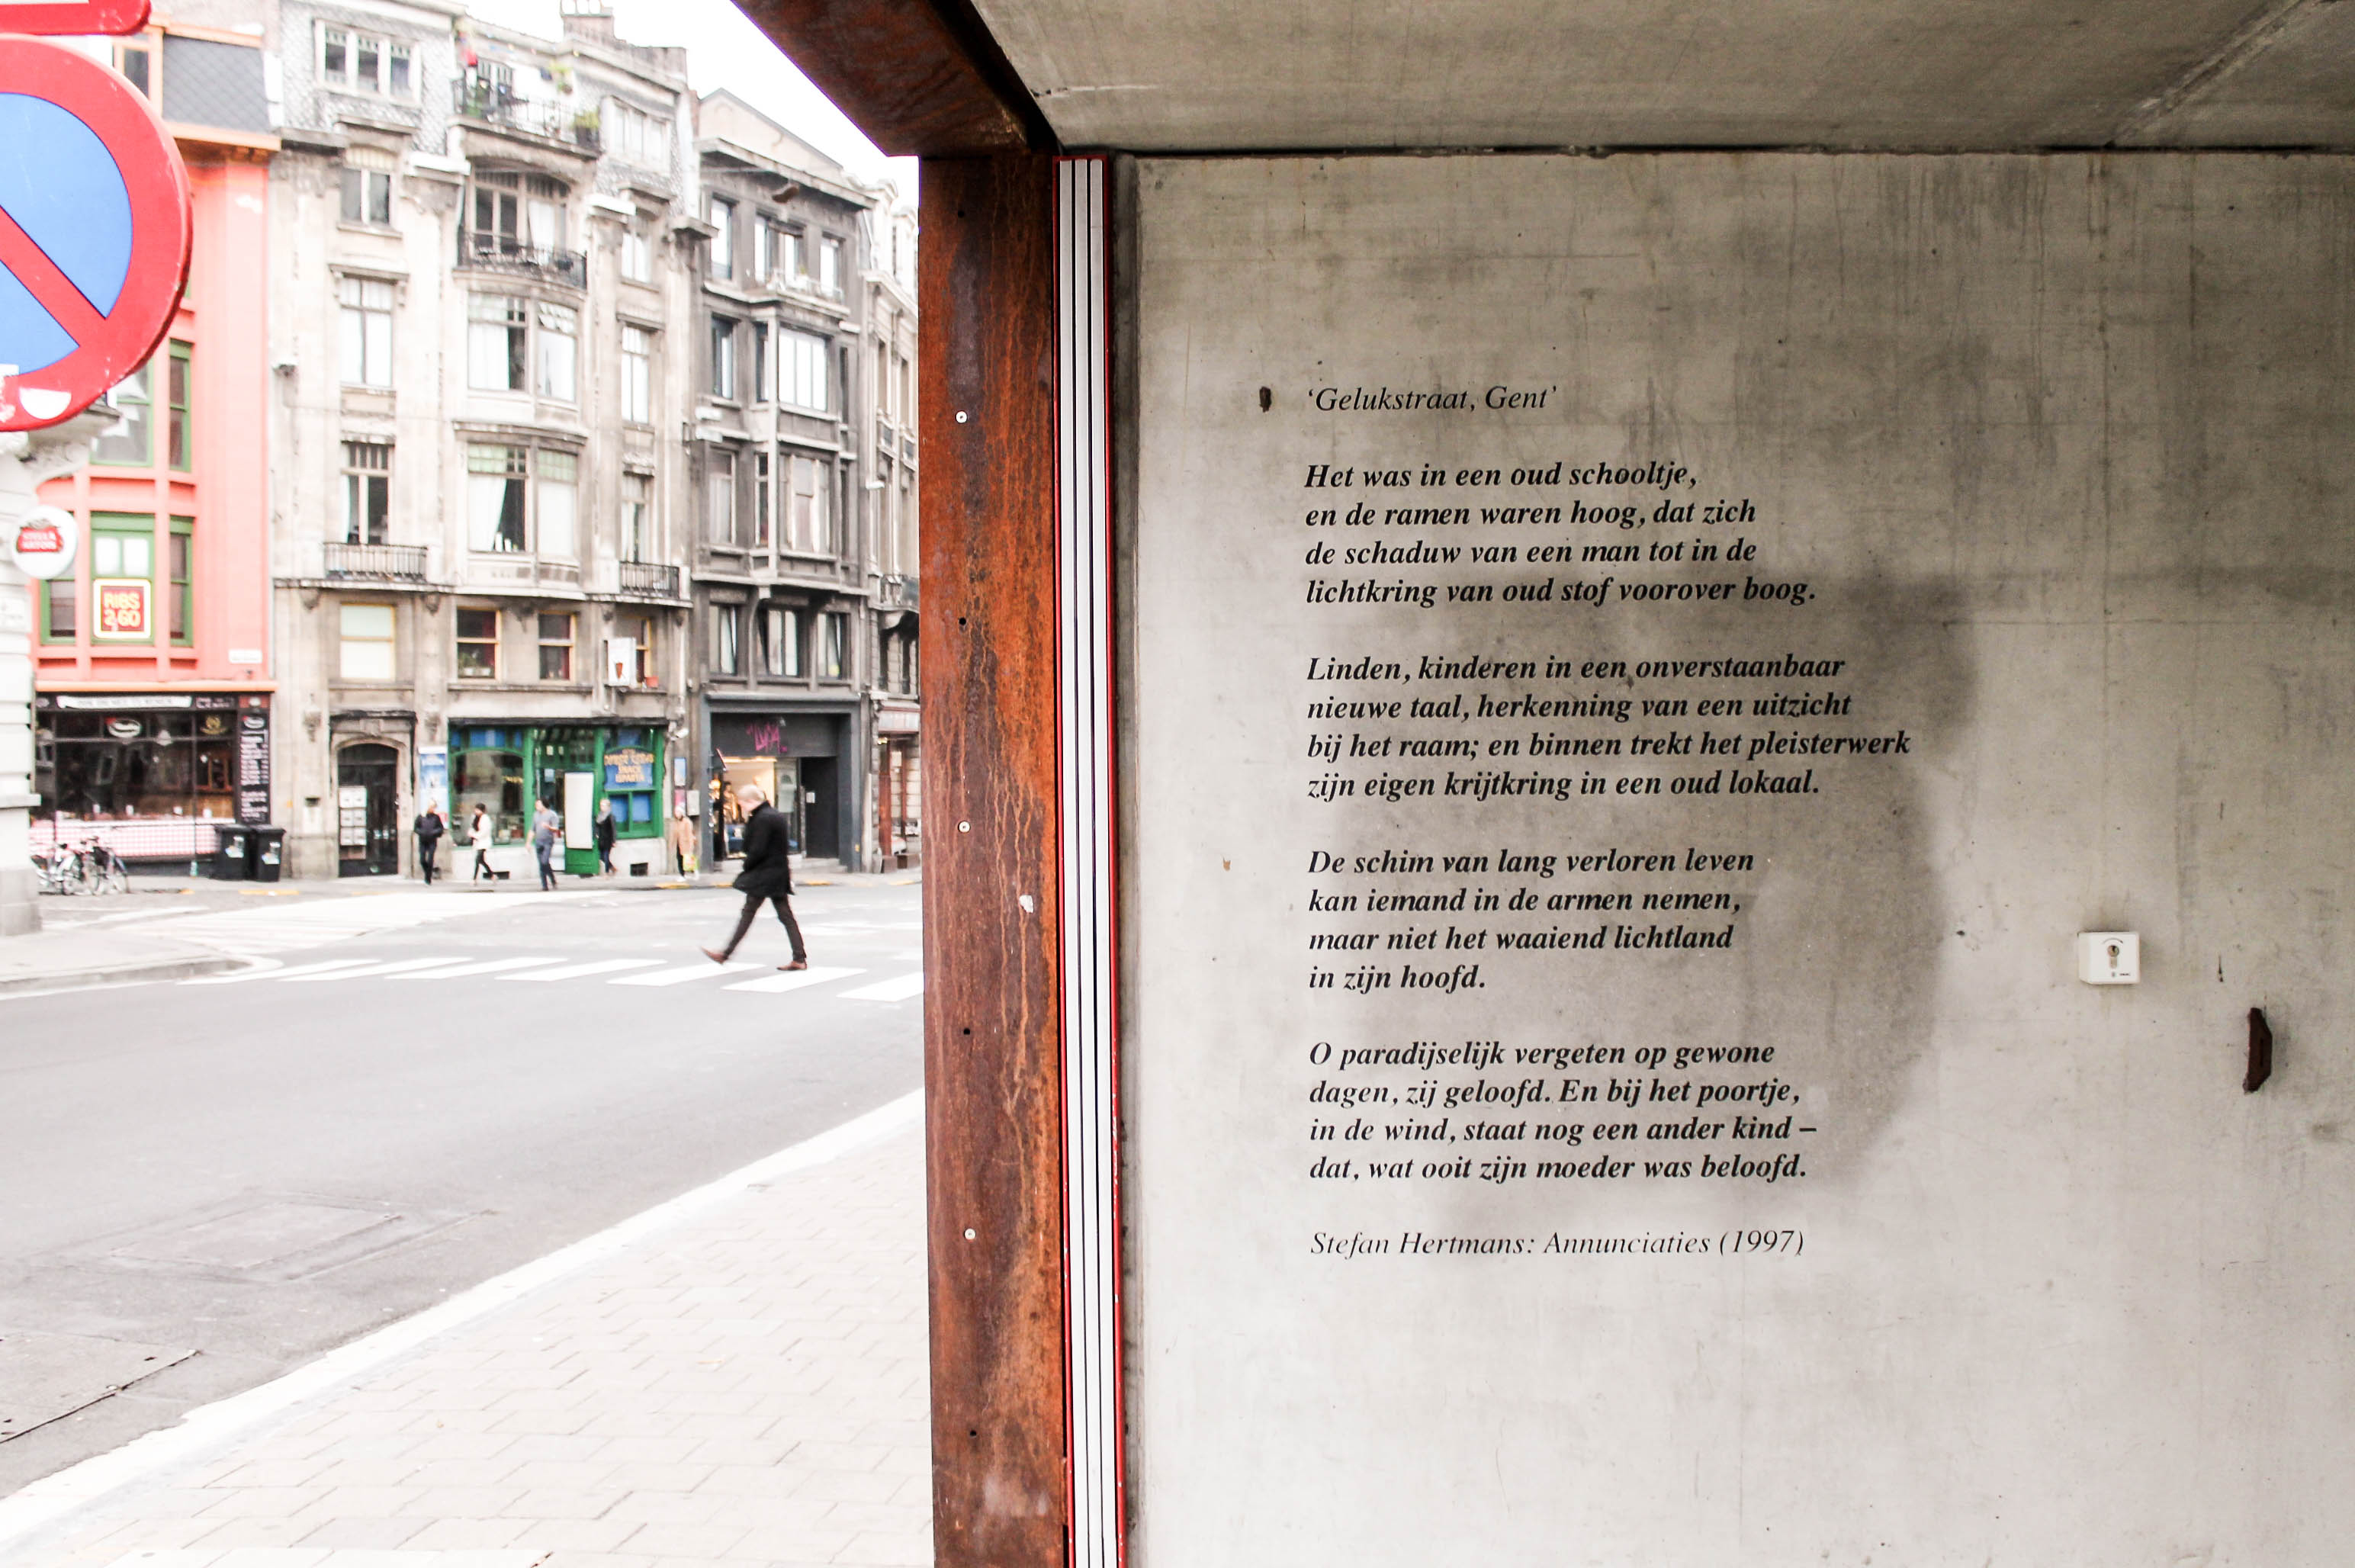 RIBS
2,60
STELLA
ARTOIS
'Gelukstraat, Gent'
Het was in een oud schooltje,
en de ramen waren hoog, dat zich
de schaduw van een man tot in de
lichtkring van oud stof voorover boog.
Linden, kinderen in een onverstaanbaar
nieuwe taal, herkenning van een uitzicht
bij het raam; en binnen trekt het pleisterwerk
zijn eigen krijtkring in een oud lokaal.
De schim van lang verloren leven
kan iemand in de armen nemen,
maar niet het waaiend lichtland
in zijn hoofd.
O paradijselijk vergeten op gewone
dagen, zij geloofd. En bij het poortje,
in de wind, staat nog een ander kind –
dat, wat ooit zijn moeder was beloofd.
Stefan Hertmans: Annunciaties (1997)